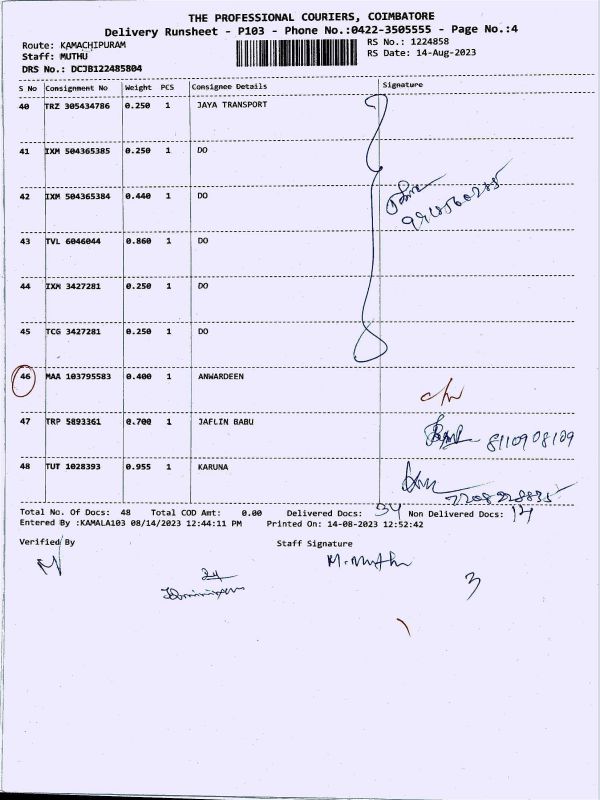 THE PROFESSIONAL COURIERS, COIMBATORE
Delivery Runsheet - P103 - Phone No.:0422-3505555 - Page No.:4
Route: KAMACHIPURAM
RS No.: 1224858
Staff: MUTHU
RS Date: 14-Aug-2023
DRS No.: DCJB122485804
S No Consignment No Weight PCS Consignee Details Signature
40 TRZ 305434786 0.250 1 JAYA TRANSPORT
41 IXM 504365385 0.250 1 DO
42 IXM 504365384 0.440 1 DO
43 TVL 6046044 0.860 1 DO
44 IXM 3427281 0.250 1 DO
45 TCG 3427281 0.250 1 DO
46 MAA 103795583 0.400 1 ANWARDEEN
47 TRP 5893361 0.700 1 JAFLIN BABU
8110908109
48 TUT 1028393 0.955 1 KARUNA
Total No. Of Docs: 48 Total COD Amt: 0.00 Delivered Docs: 34 Non Delivered Docs: 14
Entered By :KAMALA103 08/14/2023 12:44:11 PM Printed On: 14-08-2023 12:52:42
Verified By Staff Signature
M. Muthu
3